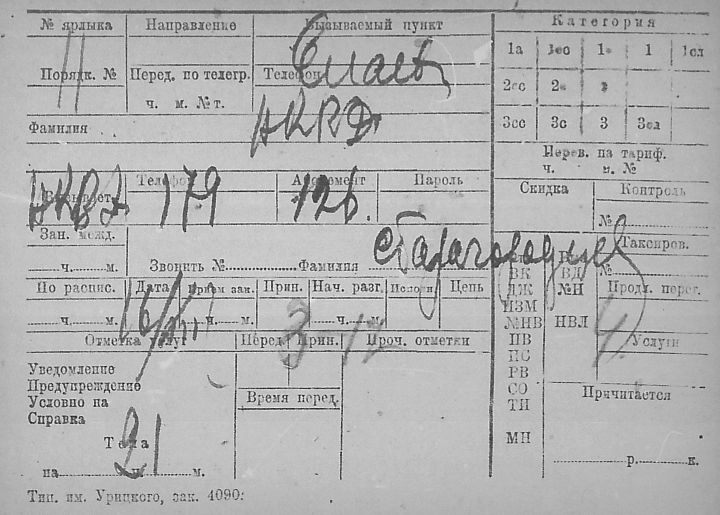 № ярлыка Направление Вызываемый пункт Категория
11
1а 1со 1в 1 1сл
Порядк. № Перед. по телегр. Телефон
ч. м. №т.
2сс 2с 2
НКВД
Фамилия
3сс 3с 3 3сл
Перев. на тариф.
ч. м. №
Телефон Абонемент Пароль
НКВД 179 126.
Скидка Контроль
№
Зан. межд.
ч. м. Звонить № Фамилия
Таксиров.
ВК ВД №
По распис. Дата Прием зак. Прин. Нач. разг. Исполн Цепь
ДЖ №Н Продл. перег.
16
ч. м. ч. м. ч. м.
ИЗМ
№НВ НВЛ 4
Отметка услуг Перед. Прин. Проч. отметки
3-12
ПВ Услуги
ПС
Уведомление
РВ
Предупреждение
СО Причитается
Условно на Время перед.
ТН
Справка
Тема
21
МН
на ч. м.
р. к.
Тип. им. Урицкого, зак. 4090.